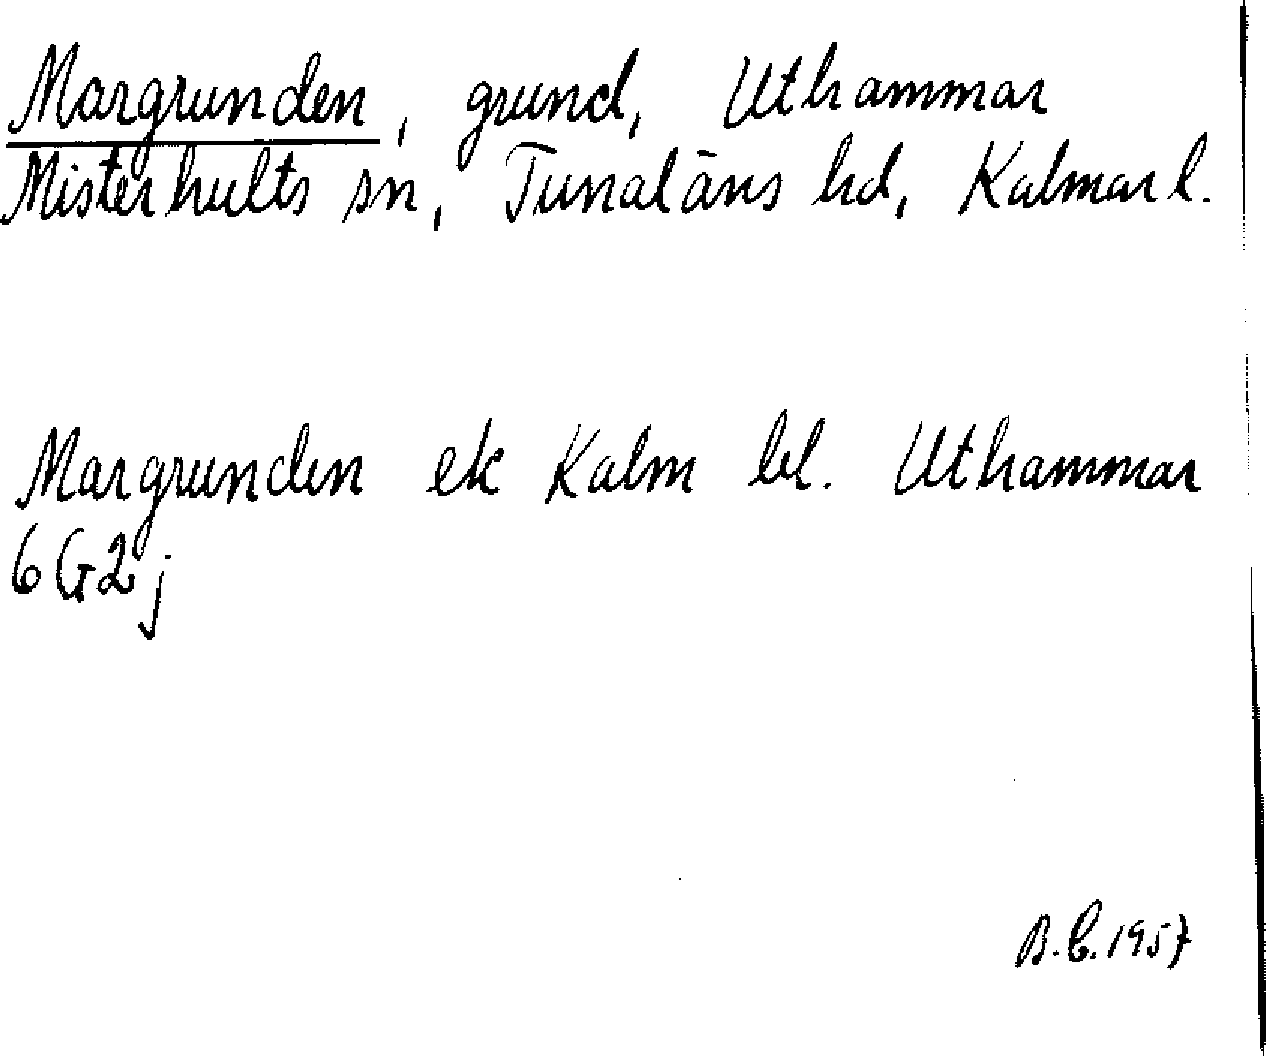 Margrunden, grund, Uthammar
Misterhults sn, Tunaläns hd, Kalmar l.
Margrunden ek Kalm bl. Uthammar
6G2j
B.C. 1957